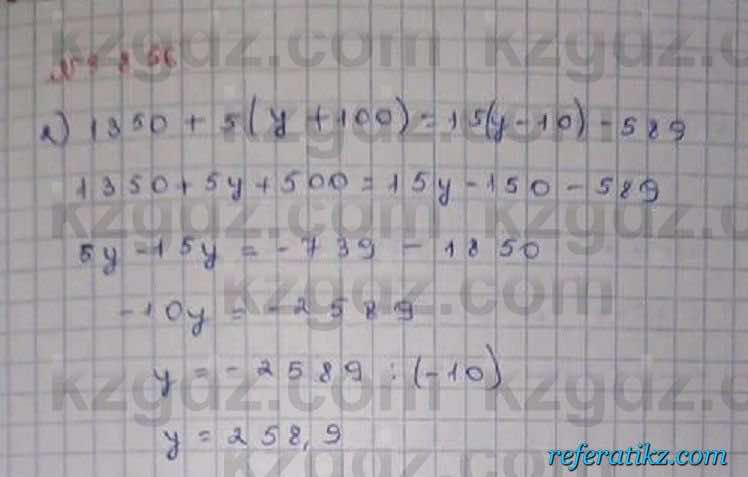 № 856
а) 1350 + 5(y + 100) = 15(y - 10) - 589
1350 + 5y + 500 = 15y - 150 - 589
5y - 15y = -739 - 1850
-10y = -2589
y = -2589 : (-10)
y = 258,9
kzgdz.com
kzgdz.com
kzgdz.com
kzgdz.com
referatikz.com